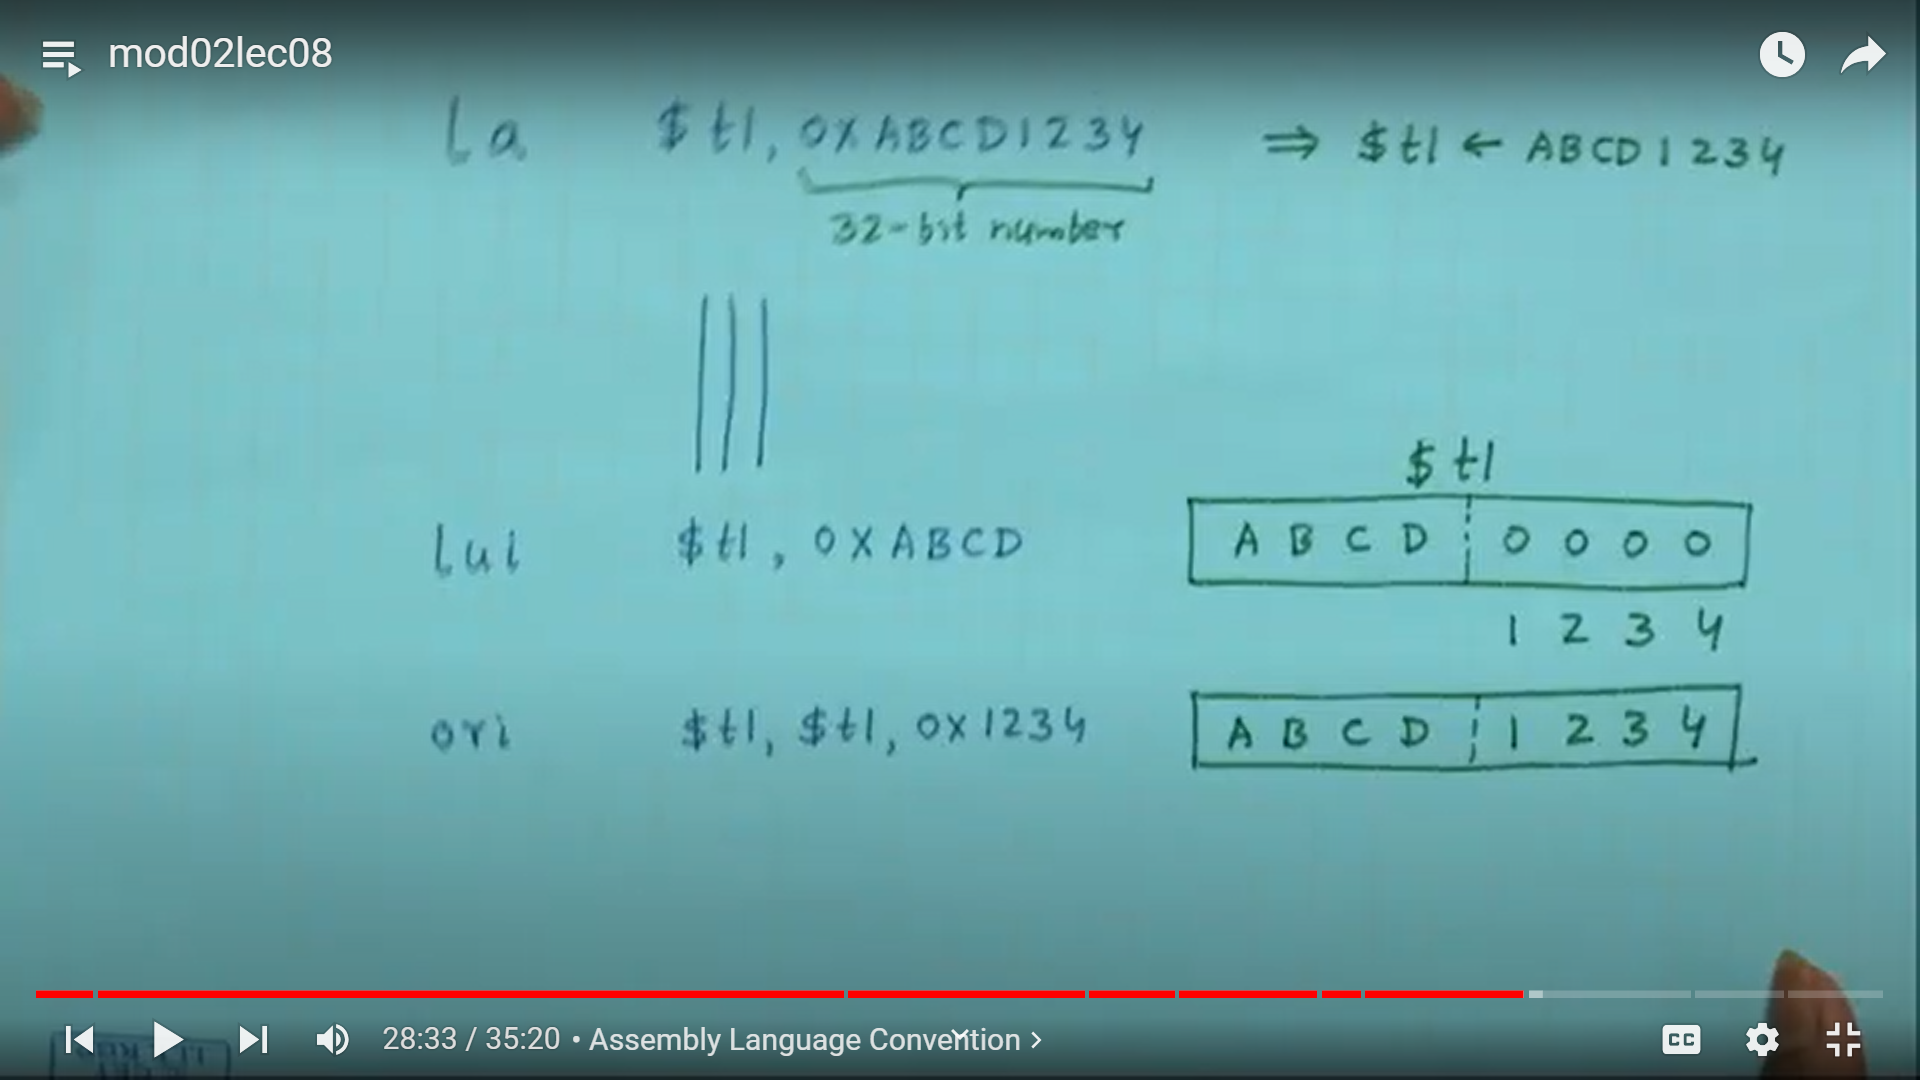 mod02lec08
la $t1, 0XABCD1234 ⇒ $t1 ← ABCD1234
32-bit number
$t1
lui $t1, 0XABCD
A B C D 0 0 0 0
1 2 3 4
ori $t1, $t1, 0X1234
A B C D 1 2 3 4
28:33 / 35:20 • Assembly Language Convention >
CC